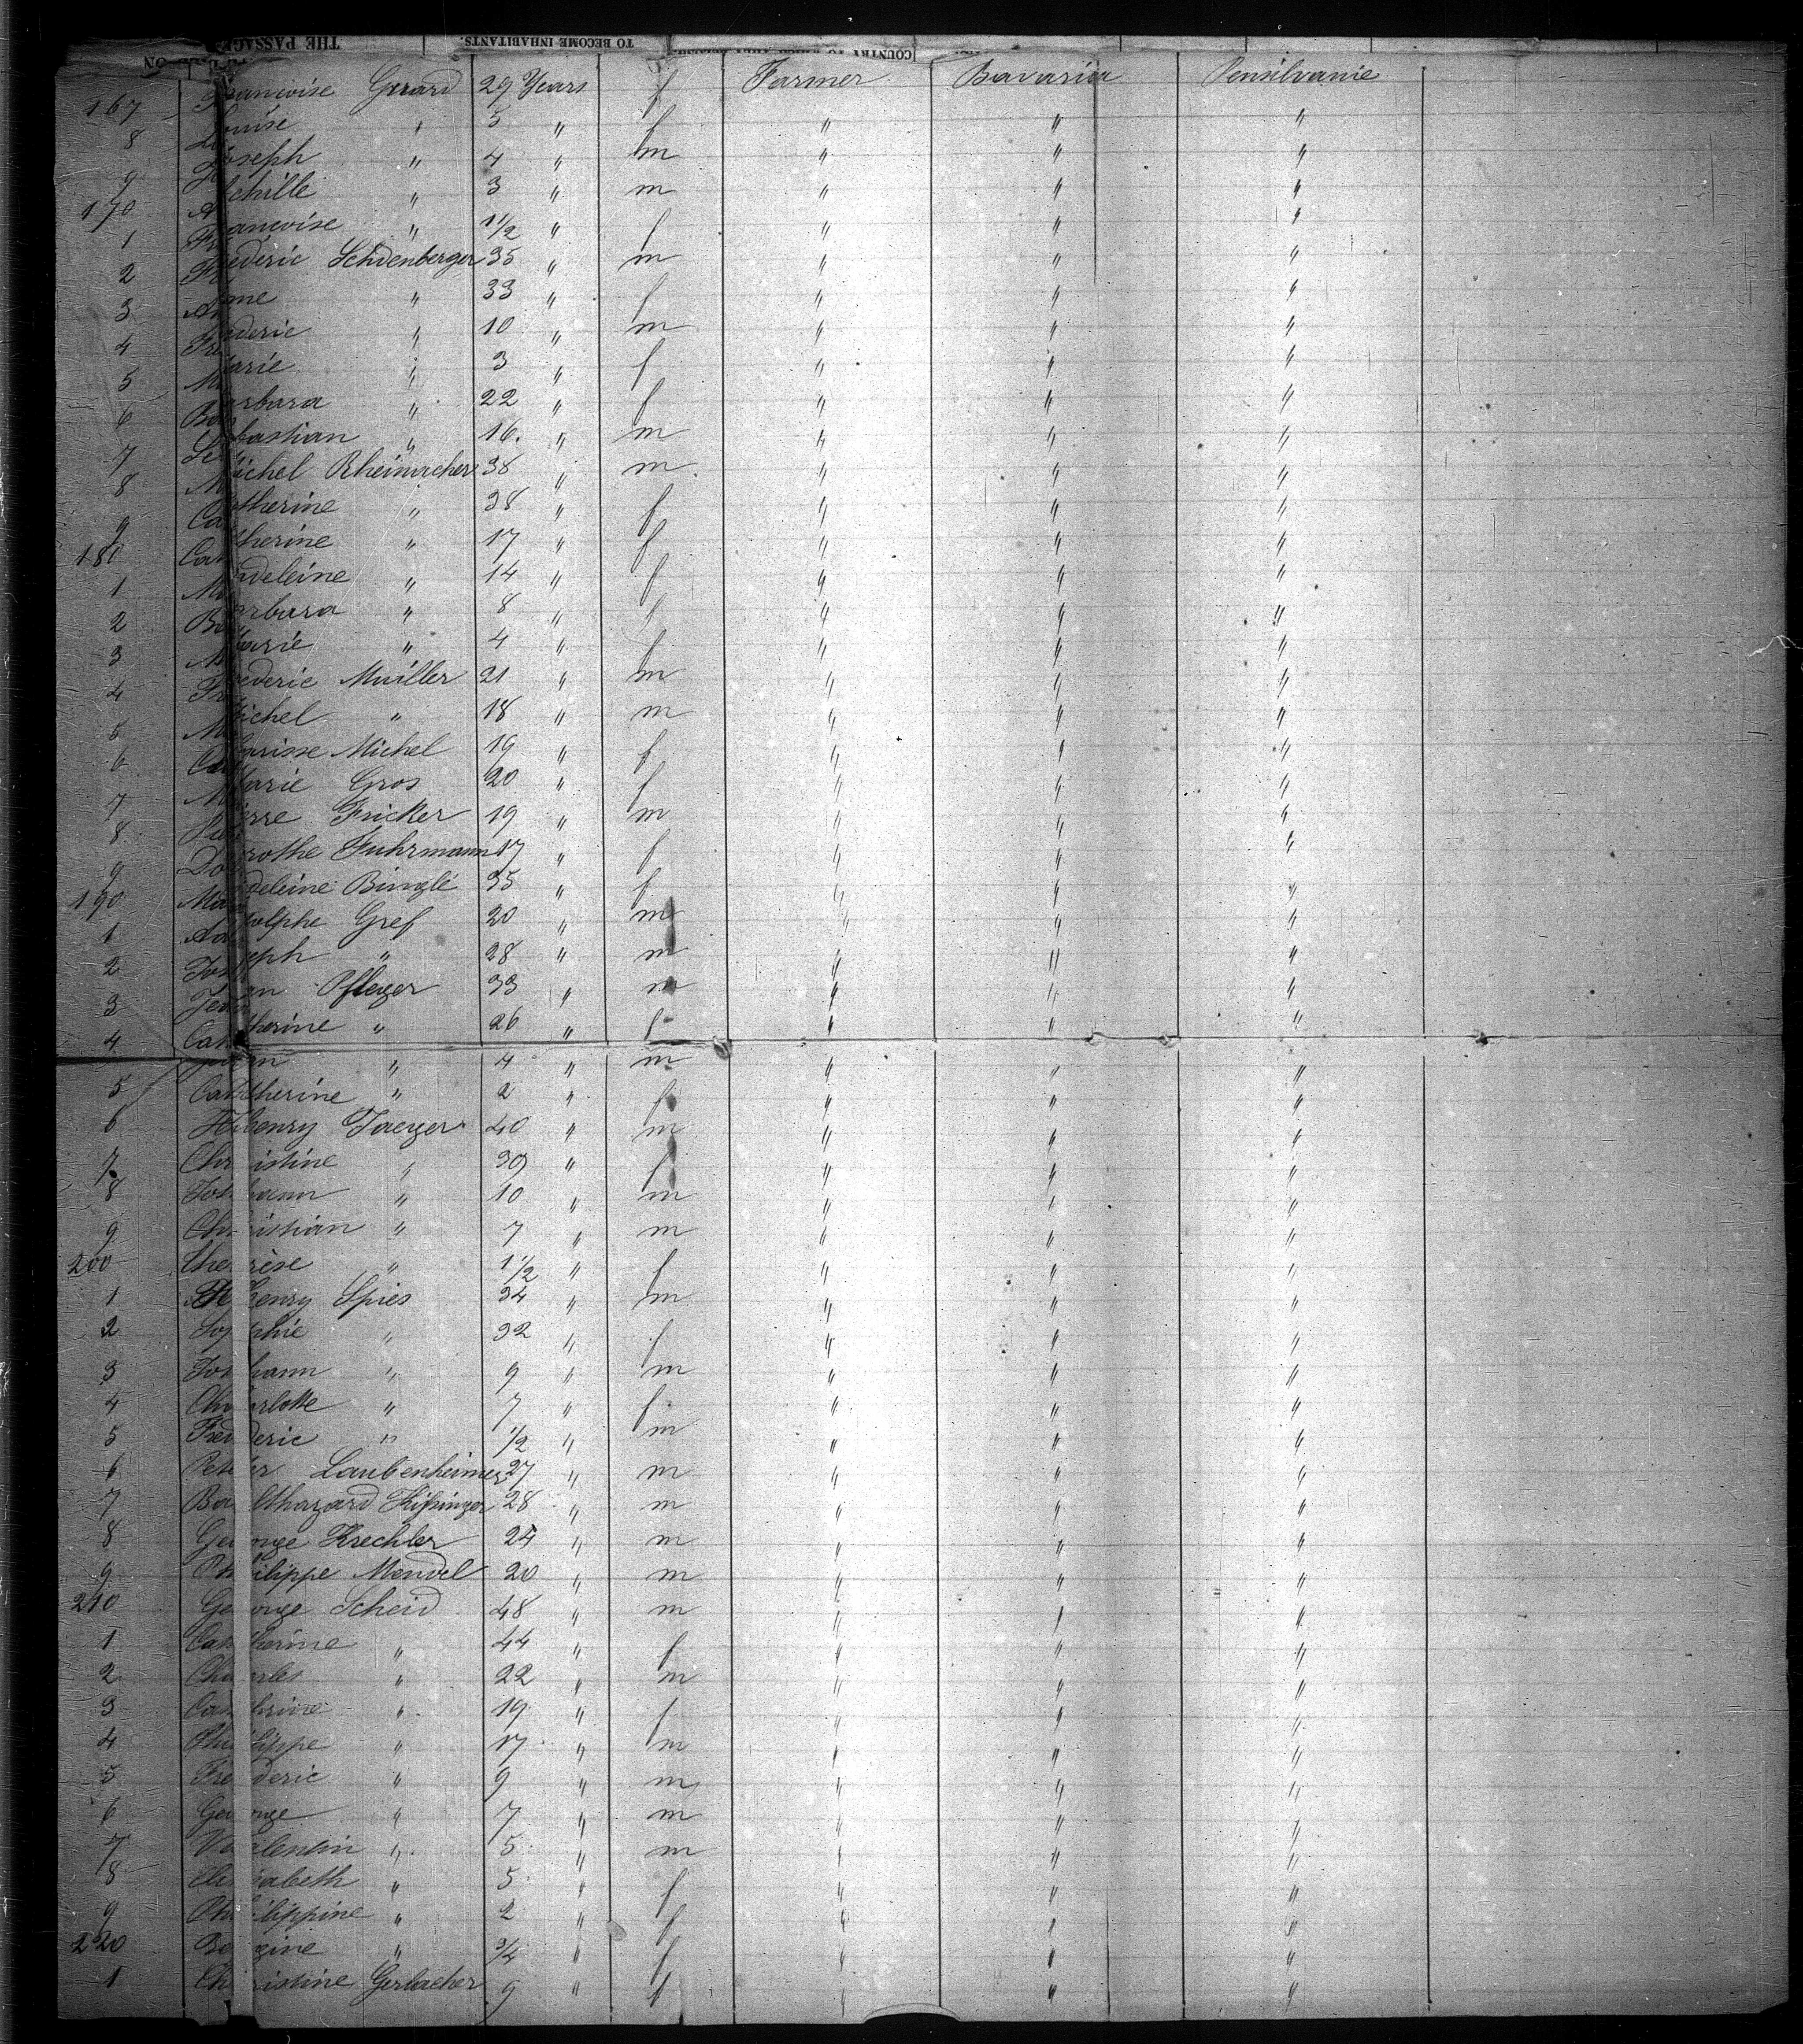 THE PASSAGE TO BECOME INHABITANTS. COUNTRY TO WHICH THEY BELONG
167 Francoise Gerard 29 Years f Farmer Bavaria Pensilvanie
8 Louise " 5 " f " " "
9 Joseph " 4 " m " " "
170 Achille " 3 " m " " "
1 Francoise " 1 1/2 " f " " "
2 Frederic Schdenberger 35 " m " " "
3 Anne " 33 " f " " "
4 Frederic " 10 " m " " "
5 Marie " 3 " f " " "
6 Barbara " 22 " f " " "
7 Sebastian " 16 " m " " "
8 Michel Rheinacher 38 " m " " "
9 Catherine " 38 " f " " "
180 Catherine " 17 " f " " "
1 Madeleine " 14 " f " " "
2 Barbara " 8 " f " " "
3 Marie " 4 " f " " "
4 Frederic Muiller 21 " m " " "
5 Michel " 18 " m " " "
6 Clarisse Michel 19 " f " " "
7 Marie Gros 20 " f " " "
8 Pierre Fricker 19 " m " " "
9 Dorothe Fuhrmann 17 " f " " "
190 Madeleine Binglé 35 " f " " "
1 Adolphe Gref 20 " m " " "
2 Joseph " 28 " m " " "
3 Jean Pfleger 33 " m " " "
4 Catherine " 26 " f " " "
" 4 " m " " "
5 Catherine " 2 " f " " "
6 Henry Jaeger 40 " m " " "
7 Christine " 39 " f " " "
8 Johann " 10 " m " " "
9 Christian " 7 " m " " "
200 therèse " 1 1/2 " f " " "
1 Henry Spies 34 " m " " "
2 Sophie " 32 " f " " "
3 Johann " 9 " m " " "
4 Charlotte " 7 " f " " "
5 Frederic " 1/2 " m " " "
6 Peter Laubenheimer 27 " m " " "
7 Balthazard Kissinger 28 " m " " "
8 George Krechler 24 " m " " "
9 Philippe Mendel 20 " m " " "
210 George Scheid 48 " m " " "
1 Catherine " 44 " f " " "
2 Charles " 22 " m " " "
3 Cathrine " 19 " f " " "
4 Philippe " 17 " m " " "
5 Frederic " 9 " m " " "
6 George " 7 " m " " "
7 Valentin " 5 " m " " "
8 Elisabeth " 5 " f " " "
9 Philippine " 2 " f " " "
220 " 3/4 " f " " "
1 Christine Gerlacher 9 " f " " "